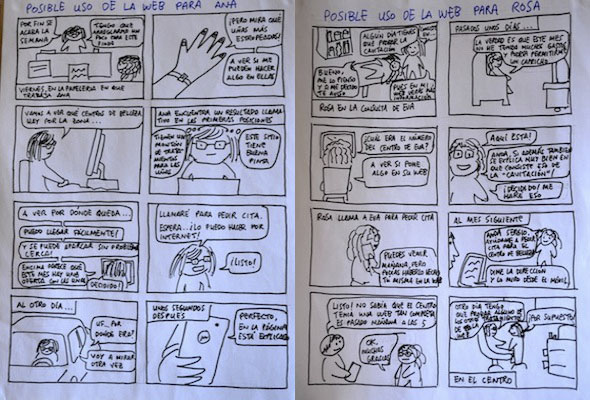 POSIBLE USO DE LA WEB PARA ANA
POR FIN SE
ACABA LA
SEMANA
TENGO QUE
ARREGLARME UN
POCO PARA ESTE
FINDE
VIERNES, EN LA PAPELERIA EN QUE
TRABAJA ANA
¡PERO MIRA QUE
UÑAS MÁS
ESTROPEADAS!
A VER SI ME
PUEDEN HACER
ALGO EN ELLAS
VAMOS A VER QUE CENTROS DE BELLEZA
HAY POR LA ZONA...
ANA ENCUENTRA UN RESULTADO LLAMA-
TIVO EN LAS PRIMERAS POSICIONES
TIENEN UN
MONTÓN
DE TRATA-
MIENTOS
PARA LAS
UÑAS
ESTE SITIO
TIENE
BUENA
PINTA
A VER POR DONDE QUEDA...
PUEDO LLEGAR FÁCILMENTE!
Y SE PUEDE APARCAR SIN PROBLEMA
CERCA!
ENCIMA PARECE QUE
ESTE MES HAY UNA
OFERTA CON LAS UÑAS
DECIDIDO!
LLAMARÉ PARA PEDIR CITA.
ESPERA...¡LO PUEDO HACER POR
INTERNET!
¡LISTO!
AL OTRO DÍA...
UF...POR
DONDE ERA?
VOY A MIRAR
OTRA VEZ
UNOS SEGUNDOS
DESPUES
PERFECTO,
EN LA PÁGINA
ESTÁ EXPLICADO
POSIBLE USO DE LA WEB PARA ROSA
ALGUN DIA TIENES
QUE PROBAR LA
CAVITACIÓN
BUENO,
ME LO PIENSO
Y SI ME DECIDO
TE AVISO
PUES EN MI
WEB VIENE
INFORMACIÓN
ROSA EN LA CONSULTA DE EVA
PASADOS UNOS DÍAS...
LA VERDAD ES QUE ESTE MES
NO HE TENIDO MUCHOS GASTOS
Y PODRÍA PERMITIRME
UN CAPRICHO
¿CUÁL ERA EL NÚMERO
DEL CENTRO DE EVA?
A VER SI PONE
ALGO EN SU WEB
AQUÍ ESTÁ!
ANDA, SI ADEMÁS TAMBIÉN
SE EXPLICA MUY BIEN EN
QUE CONSISTE ESO DE
LA "CAVITACIÓN"!
¡DECIDIDO! ME
HARÉ ESO
ROSA LLAMA A EVA PARA PEDIR CITA
PUEDES VENIR
MAÑANA, PERO
PODÍAS HABERLO HECHO
TÚ MISMA EN LA WEB
AL MES SIGUIENTE
ANDA SERGIO,
AYÚDAME A PEDIR
CITA PARA EL
CENTRO DE BELLEZA
DIME LA DIRECCIÓN
Y LO MIRO DESDE EL MÓVIL
LISTO! NO SABÍA QUE EL CENTRO
TENÍA UNA WEB TAN COMPLETA
ES PASADO MAÑANA A LAS 5
OK,
MUCHAS
GRACIAS
OTRO DIA TENGO
QUE PROBAR ALGUNO DE
LOS OTROS TRATAMIENTOS
¡POR SUPUESTO!
EN EL CENTRO